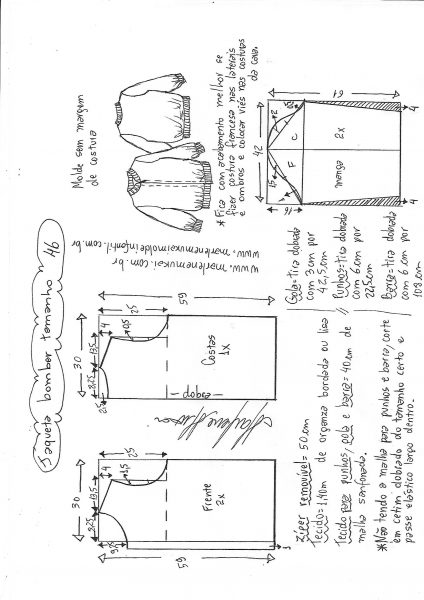 Jaqueta bomber tamanho 46
www.marlenemukai.com.br
www.marlenemukaimoldeinfantil.com.br
Molde sem margem
de costura
* Fica com acabamento melhor se
fizer costura francesa nas laterais
e ombros e colocar viés nas costuras
da cava.
30
9,25
13,5
4
9,25
4,5
25
59
Frente
2x
3
30
8,25
13,5
4
2,5
0,5
25
59
Costas
1x
dobra
42
61
16
1,5
2
0,5
F
C
manga
2x
4
4
Zíper removível = 50cm
Tecido = 1,40m de organza bordada ou lisa
Tecido para punhos, gola e barra = 40cm de
malha sanfonada.
*Não tendo a malha para punhos e barra, corte
em cetim dobrado do tamanho certo e
passe elástico largo dentro.
Gola=tira dobrada
com 3cm por
42,5cm
Punhos=tira dobrada
com 6cm por
22,5cm
Barra=tira dobrada
com 6cm por
108cm